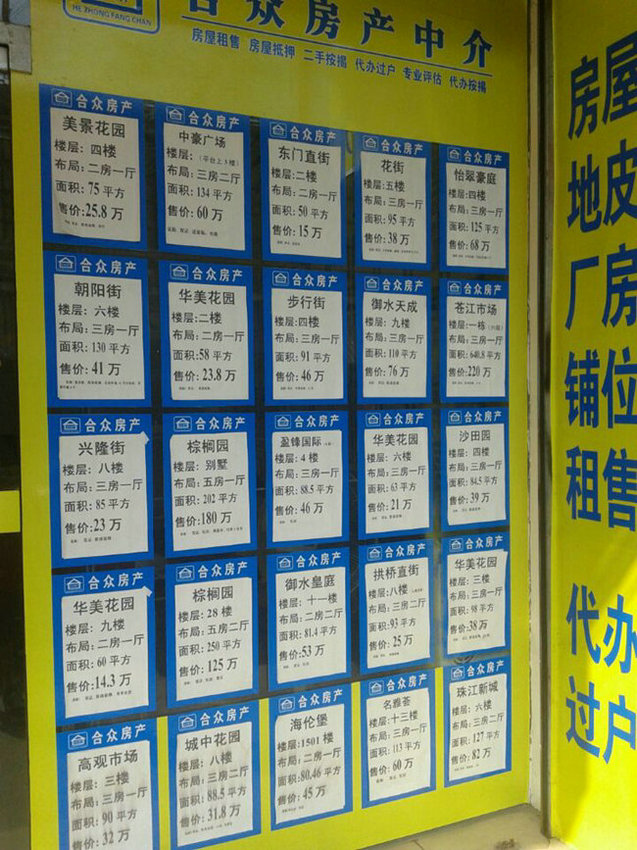 HE ZHONG FANG CHAN
合众房产中介
房屋租售 房屋抵押 二手按揭 代办过户 专业评估 代办按揭
合众房产
美景花园
楼层: 四楼
布局: 二房一厅
面积: 75 平方
售价:25.8 万
合众房产
中豪广场
楼层: (平台上5楼)
布局: 三房二厅
面积: 134 平方
售价: 60 万
合众房产
东门直街
楼层: 二楼
布局: 二房一厅
面积: 50 平方
售价: 15 万
合众房产
花街
楼层: 五楼
布局: 三房一厅
面积: 95 平方
售价: 38 万
合众房产
怡翠豪庭
楼层: 四楼
布局: 三房一厅
面积: 125 平方
售价: 68 万
合众房产
朝阳街
楼层: 六楼
布局: 三房一厅
面积: 130 平方
售价: 41 万
合众房产
华美花园
楼层: 二楼
布局: 二房一厅
面积:58 平方
售价: 23.8 万
合众房产
步行街
楼层: 四楼
布局: 三房一厅
面积: 91 平方
售价: 46 万
合众房产
御水天成
楼层: 九楼
布局: 三房一厅
面积: 110 平方
售价: 76 万
合众房产
苍江市场
楼层: 一栋
布局: 三房一厅
面积: 640.8 平方
售价:220 万
合众房产
兴隆街
楼层: 八楼
布局: 三房一厅
面积: 85 平方
售价: 23 万
合众房产
棕榈园
楼层: 别墅
布局: 五房一厅
面积: 202 平方
售价:180 万
合众房产
盈锋国际
楼层: 4 楼
布局: 三房一厅
面积: 88.5 平方
售价: 46 万
合众房产
华美花园
楼层: 六楼
布局: 二房一厅
面积: 63 平方
售价: 21 万
合众房产
沙田园
楼层: 四楼
布局: 三房一厅
面积: 84.5 平方
售价: 39 万
合众房产
华美花园
楼层: 九楼
布局: 二房一厅
面积: 60 平方
售价: 14.3 万
合众房产
棕榈园
楼层: 28 楼
布局: 五房二厅
面积: 250 平方
售价: 125 万
合众房产
御水皇庭
楼层: 十一楼
布局: 二房二厅
面积: 81.4 平方
售价:53 万
合众房产
拱桥直街
楼层: 八楼
布局: 三房二厅
面积: 93 平方
售价: 25 万
合众房产
华美花园
楼层: 三楼
布局: 三房一厅
面积: 98 平方
售价:38 万
合众房产
高观市场
楼层: 三楼
布局: 三房一厅
面积: 90 平方
售价: 32 万
合众房产
城中花园
楼层: 八楼
布局: 三房二厅
面积: 88.5 平方
售价: 31.8 万
合众房产
海伦堡
楼层: 1501 楼
布局: 二房一厅
面积: 80.46 平方
售价: 45 万
合众房产
名雅荟
楼层: 十三楼
布局: 三房一厅
面积: 113 平方
售价: 60 万
合众房产
珠江新城
楼层: 六楼
布局: 三房二厅
面积: 127 平方
售价: 82 万
房屋
地皮
厂房
铺位
租售
代办
过户